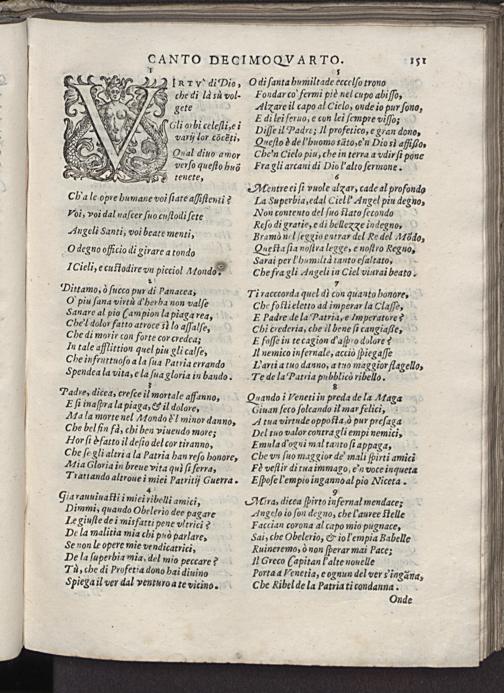 CANTO DECIMOQVARTO. 151
1
VIRTV' di Dio,
che di là sù vol-
gete
Gli orbi celesti, e i
varij lor cõcẽti.
Qual diuo amor
verso questo huõ
tenete,
Ch'a le opre humane voi siate assistenti?
Voi, voi dal nascer suo custodi sete
Angeli Santi, voi beate menti,
O degno officio di girare a tondo
I Cieli, e custodire vn picciol Mondo.
2
Dittamo, ò succo pur di Panacea,
O' piu sana virtù d'herba non valse
Sanare al pio Campion la piaga rea,
Che'l dolor fatto atroce sì lo assalse,
Che di morir con forte cor credea;
In tale afflittion quel piu gli calse,
Che infruttuoso a la sua Patria errando
Spendea la vita, e la sua gloria in bando.
3
Padre, dicea, cresce il mortale affanno,
E si inaspra la piaga, & il dolore,
Ma la morte nel Mondo è'l minor danno,
Che bel fin fà, chi ben viuendo more;
Hor si è fatto il desio del cor tiranno,
Che se gli altri a la Patria han reso honore,
Mia Gloria in breue vita quì si serra,
Trattando altroue i miei Patritij Guerra.
4
Gia rauuiuasti i miei ribelli amici,
Dimmi, quando Obelerio dee pagare
Le giuste de i misfatti pene vltrici?
De la malitia mia chi può parlare,
Se non le opere mie vendicatrici,
De la superbia mia, del mio peccare?
Tù, che di Profetia dono hai diuino
Spiega il ver dal venturo a te vicino.
5
O di santa humiltade eccelso trono
Fondar co' fermi piè nel cupo abisso,
Alzare il capo al Cielo, onde io pur sono,
E di lei seruo, e con lei sempre visso;
Disse il Padre; Il profetico, e gran dono,
Questo è de l'huomo tãto, e'n Dio sì affisso,
Che'n Ciel o piu, che in terra a vdir si pone
Fra gli arcani di Dio l'alto sermone.
6
Mentre ei si vuole alzar, cade al profondo
La Superbia, e dal Ciel l'Angel piu degno,
Non contento del suo stato secondo
Reso di gratie, e di bellezze indegno,
Bramò nel seggio entrar del Re del Mõdo,
Questa sia nostra legge, e nostro Regno,
Sarai per l'humiltà tanto esaltato,
Che fra gli Angeli in Ciel viurai beato.
7
Ti raccorda quel dì con quanto honore,
Che fosti eletto ad imperar la Classe,
E Padre de la Patria, e Imperatore?
Chi crederia, che il bene si cangiasse,
E fosse in te cagion d'aspro dolore?
Il nemico infernale, acciò spiegasse
L'arti a tuo danno, a tuo maggior flagello,
Te de la Patria pubblicò ribello.
8
Quando i Veneti in preda de la Maga
Giuan seco solcando il mar felici,
A tua virtude opposta, ò pur presaga
Del tuo valor contra gli empi nemici,
Emula d'ogni mal tanto si appaga,
Che vn suo maggior de' mali spirti amici
Fè vestir di tua immago, e'n voce inqueta
Espose l'empio inganno al pio Niceta.
9
Mira, dicea spirto infernal mendace;
Angelo io son degno, che l'auree stelle
Faccian corona al capo mio pugnace,
Sai, che Obelerio, & io l'empia Babelle
Ruineremo, ò non sperar mai Pace;
Il Greco Capitan l'alte nouelle
Porta a Venetia, e ognun del ver s'ingãna,
Che Ribel de la Patria ti condanna.
Onde